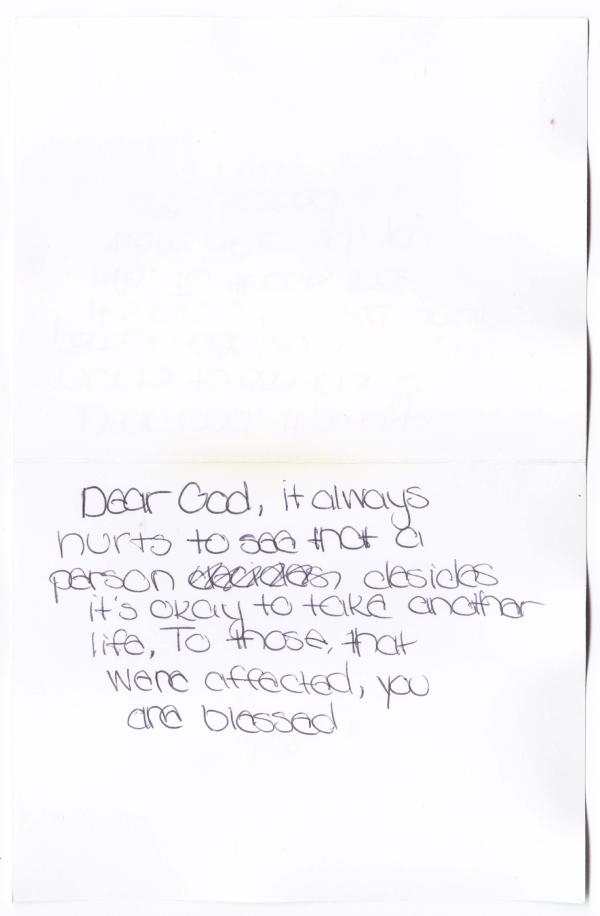 Dear God, it always
hurts to see that a
person desides
it's okay to take another
life, To those, that
were affected, you
are blessed